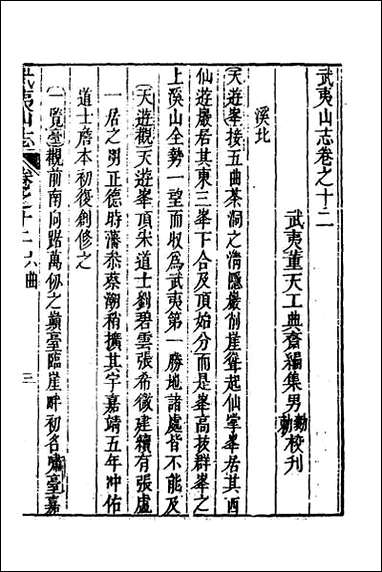 武夷山志卷之十二
武夷董天工典齋編集男勤勷校刊
溪北
天遊峯接五曲茶洞之清隱巖削崖聳起仙掌峯居其西
仙遊巖居其東三峯下合及頂始分而是峯高拔群峯之
上溪山全勢一望而収為武夷第一勝地諸處皆不能及
天遊觀天遊峯頂宋道士劉碧雲張希微建續有張盧
一居之明正德時藩叅蔡潮稍擴其宇嘉靖五年冲佑
道士詹本初復創修之
一覽臺觀前南向踞萬仭之巔臺臨崖畔初名嘯臺嘉
武夷山志 卷之十二 六曲 三